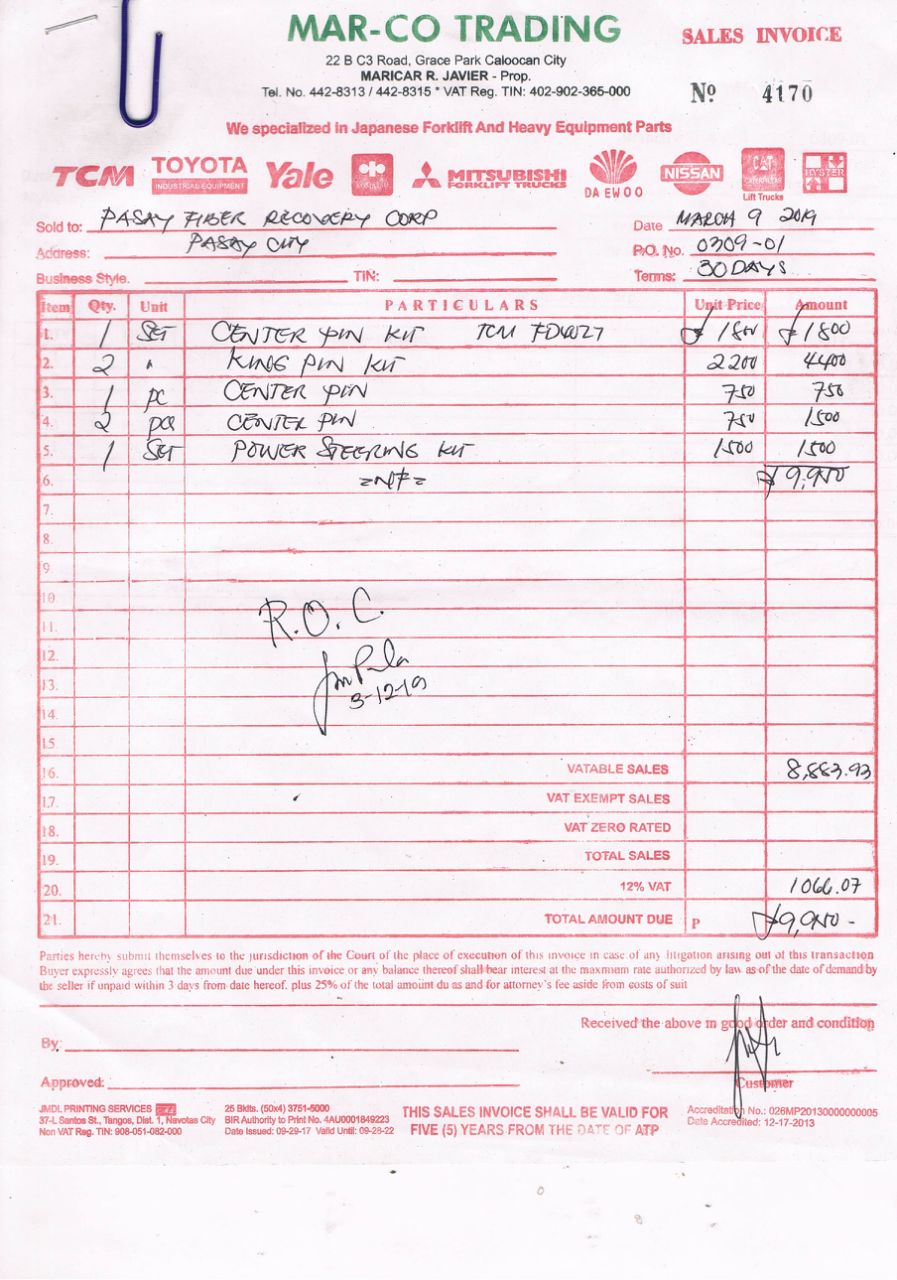 MAR-CO TRADING
SALES INVOICE
22 B C3 Road, Grace Park Caloocan City
MARICAR R. JAVIER - Prop.
Tel. No. 442-8313 / 442-8315 * VAT Reg. TIN: 402-902-365-000
Nº 4170
We specialized in Japanese Forklift And Heavy Equipment Parts
TCM TOYOTA INDUSTRIAL EQUIPMENT Yale MITSUBISHI FORKLIFT TRUCKS DAEWOO NISSAN CAT Lift Trucks HYSTER
Sold to: PASAY FIBER RECOVERY CORP Date MARCH 9 2019
Address: PASAY CITY P.O. No. 0309-01
Business Style. TIN: Terms: 30 DAYS
Item Qty. Unit PARTICULARS Unit Price Amount
1. 1 SET CENTER PIN KIT TCM 1800 ₱ 1800
2. 2 " KING PIN KIT 2200 4400
3. 1 PC CENTER PIN 750 750
4. 2 PCS CENTER PIN 750 1500
5. 1 SET POWER STEERING KIT 1500 1500
6. =NF= ₱ 9,950
7.
8.
9.
10.
R.O.C.
11.
12.
13.
3-12-19
14.
15.
16. VATABLE SALES 8,883.93
17. VAT EXEMPT SALES
18. VAT ZERO RATED
19. TOTAL SALES
20. 12% VAT 1066.07
21. TOTAL AMOUNT DUE P ₱9,950-
Parties hereby submit themselves to the jurisdiction of the Court of the place of execution of this invoice in case of any litigation arising out of this transaction
Buyer expressly agrees that the amount due under this invoice or any balance thereof shall bear interest at the maxmum rate authorized by law as of the date of demand by
the seller if unpaid within 3 days from date hereof. plus 25% of the total amount du as and for attorney's fee aside from costs of suit
Received the above in good order and condition
By:
Approved:
Customer
JMDL PRINTING SERVICES
37-L Santos St., Tangos, Dist. 1, Navotas City
Non VAT Reg. TIN: 908-051-082-000
25 Bklts. (50x4) 3751-5000
BIR Authority to Print No. 4AU0001849223
Date Issued: 09-29-17 Valid Until: 09-28-22
THIS SALES INVOICE SHALL BE VALID FOR
FIVE (5) YEARS FROM THE DATE OF ATP
Accreditation No.: 026MP20130000000005
Date Accredited: 12-17-2013